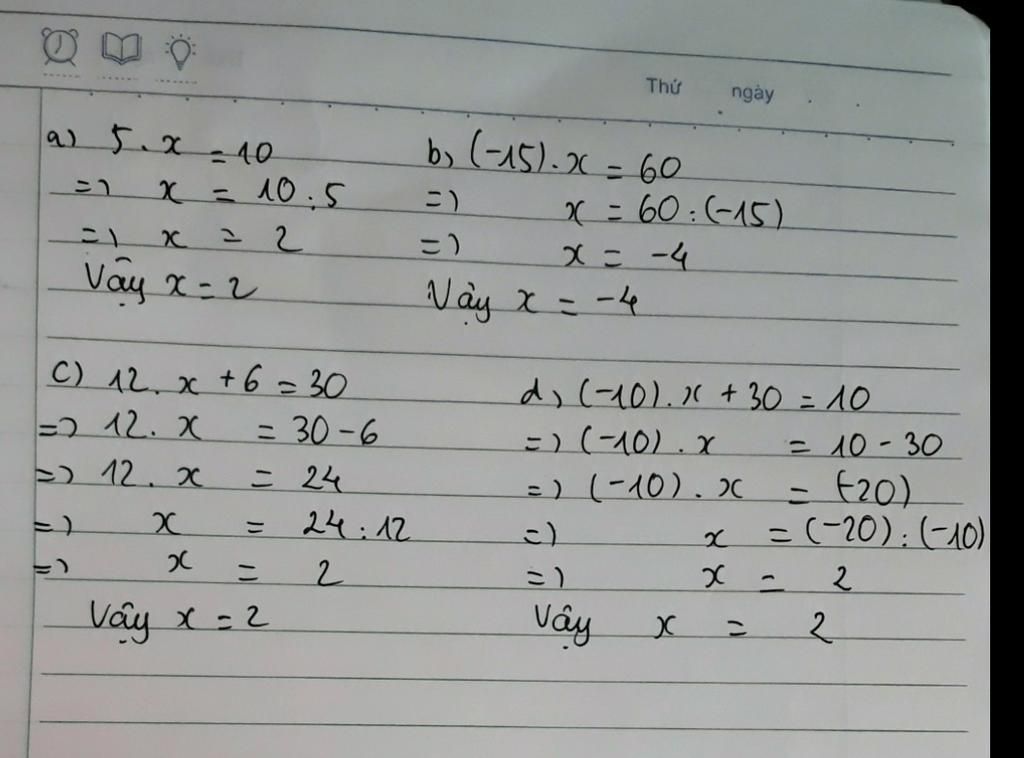 Thứ ngày
a) 5 . x = 10
=> x = 10 : 5
=> x = 2
Vậy x = 2
b) (-15) . x = 60
=> x = 60 : (-15)
=> x = -4
Vậy x = -4
c) 12 . x + 6 = 30
=> 12 . x = 30 - 6
=> 12 . x = 24
=> x = 24 : 12
=> x = 2
Vậy x = 2
d) (-10) . x + 30 = 10
=> (-10) . x = 10 - 30
=> (-10) . x = (-20)
=> x = (-20) : (-10)
=> x = 2
Vậy x = 2